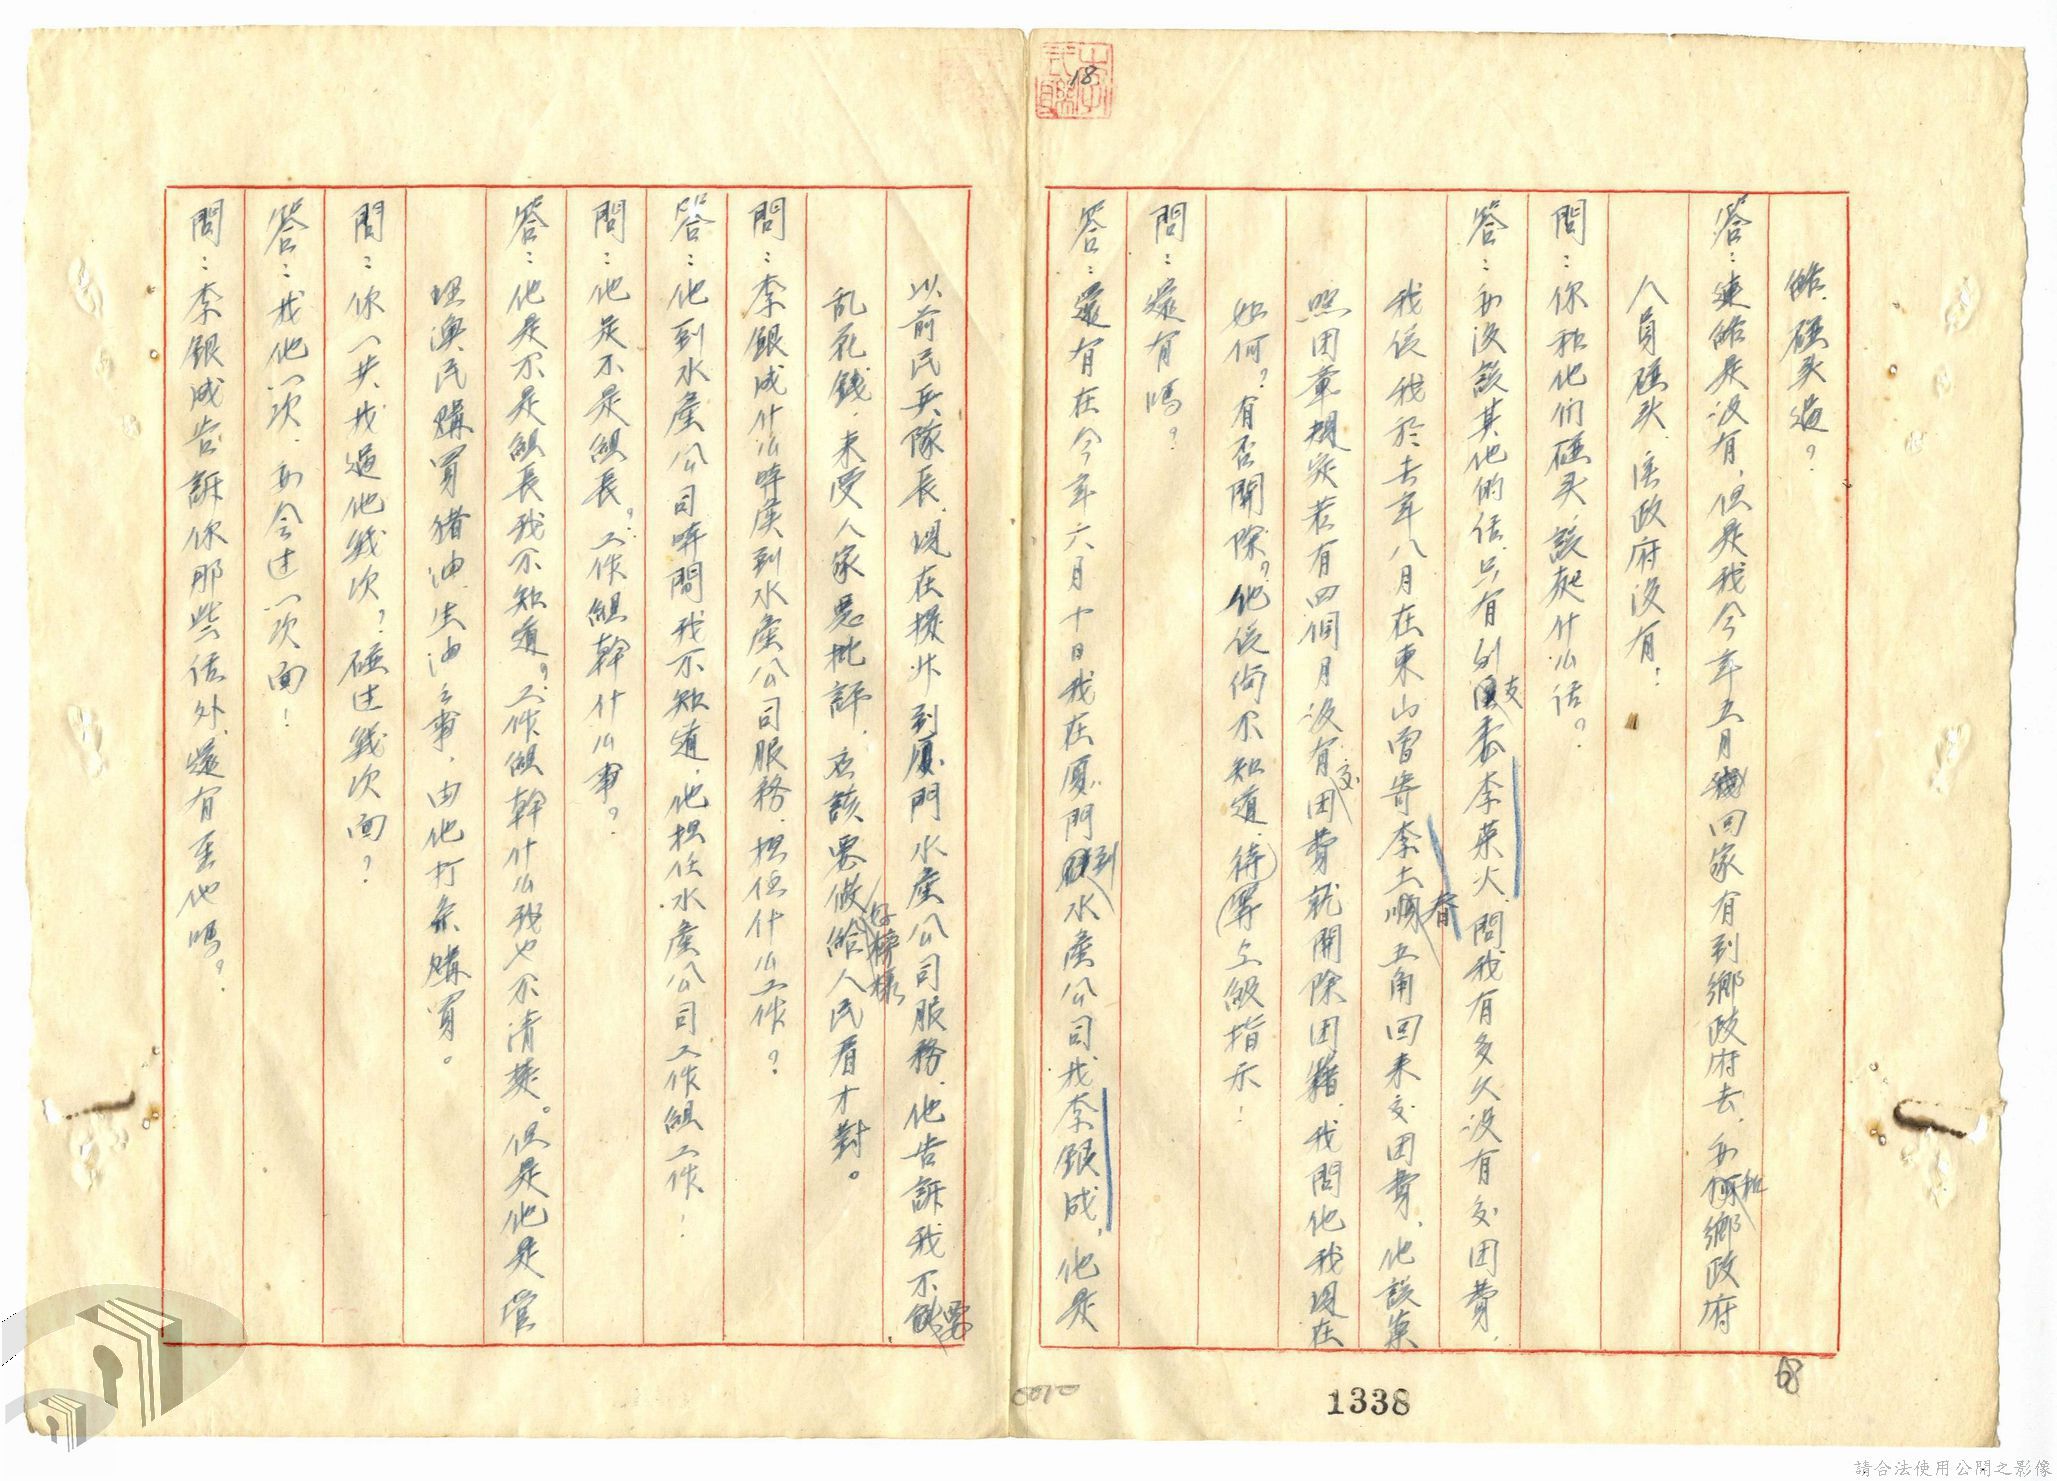 18
絡碰头過？
答：連絡是没有，但是我今年五月回家有到鄉政府去，和鄉政府
人員碰头，区政府没有！
問：你和他們碰头，談起什么话？
答：和没談其他的话只有到支委李菜火問我有多久没有交团費，
我後我於去年八月在東山曾寄李土順五角回来交团費，他說東
照团章規定若有四個月没有交团費就開除团籍，我問他我現在
如何？有否開除？他後尚不知道，待上級指示！
問：還有嗎？
答：還有在今年六月十日我在厦門到水產公司找李銀成，他是
以前民兵隊長，現在提升到厦門水產公司服務，他告訴我不要
乱花錢，未受人家惡批評，应該要做好榜樣給人民看才對。
問：李銀成什么時候到水產公司服務，担任什么工作？
答：他到水產公司時間我不知道，他担任水產公司工作組工作！
問：他是不是組長？工作組幹什么事？
答：他是不是組長我不知道？工作組幹什么我也不清楚。但是他是管
理漁民購買猪油生油之事，由他打条購買。
問：你一共找過他幾次？碰过幾次面？
答：找他一次，和会过一次面！
問：李銀成告訴你那些话外，還有至他嗎？
68
1338
請合法使用公開之影像